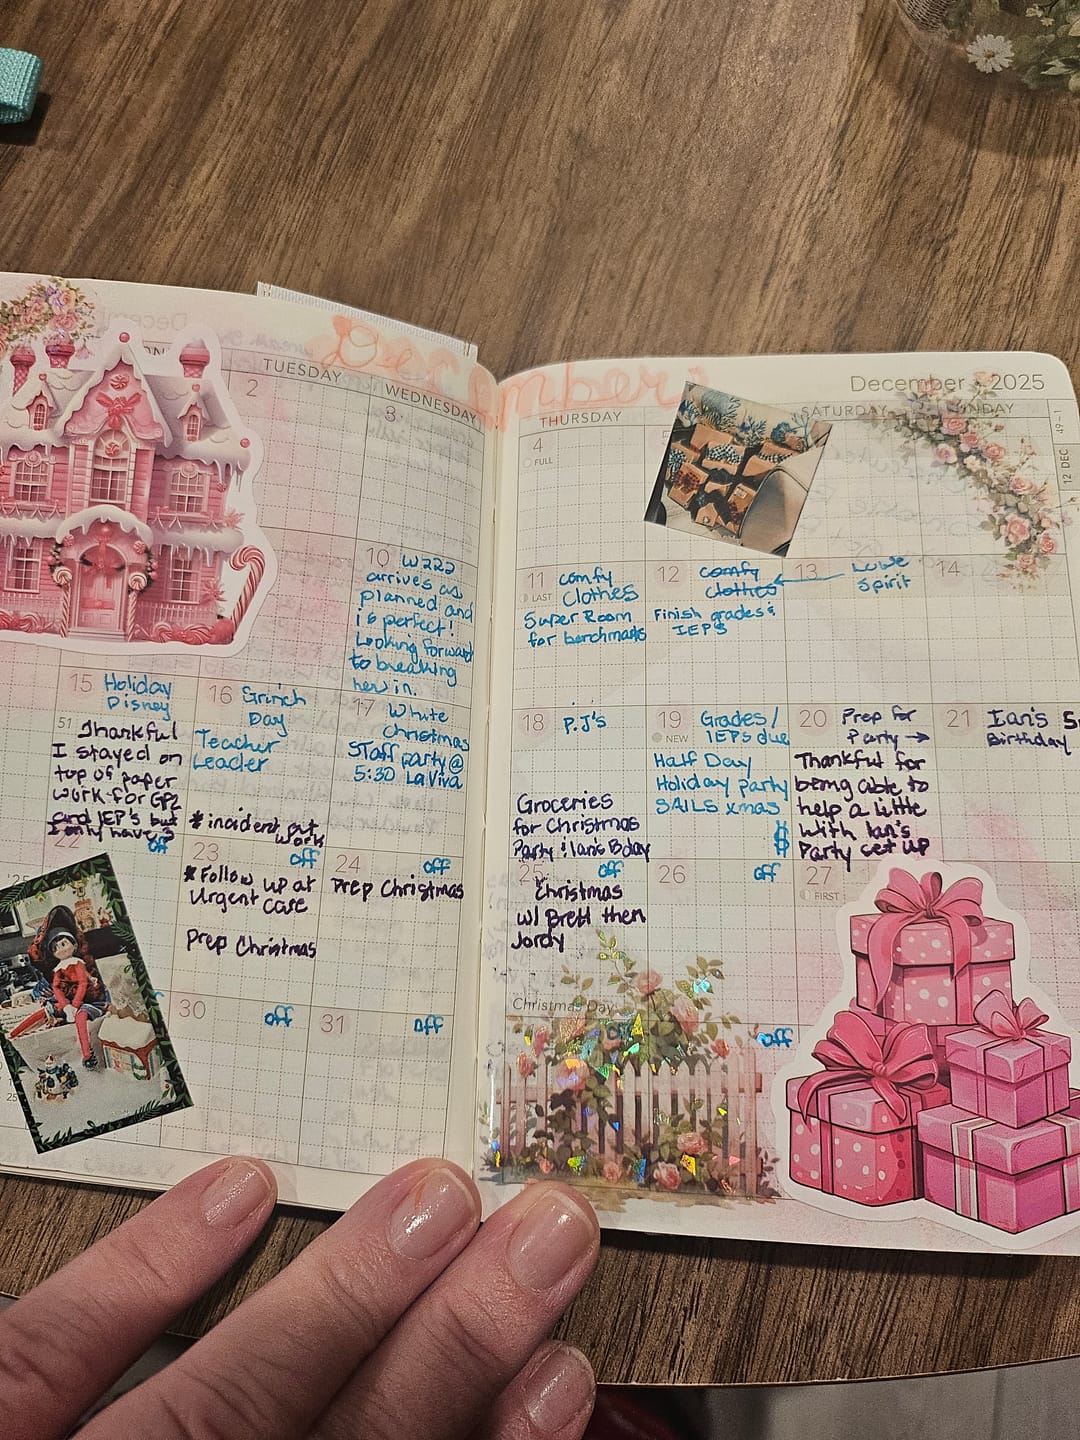 December
December 2025
TUESDAY
WEDNESDAY
THURSDAY
SATURDAY
2
3
4
FULL
49-1
12 DEC
10 W222
arrives as
planned and
is perfect!
Looking forward
to breaking
her in.
11 comfy
LAST
Clothes
Super Room
for benchmarks
12 comfy
clothes
Finish grades &
IEPS
13 Luve
Spirit
14
15 Holiday
Disney
51 Thankful
I stayed on
top of paper
work for GPZ
and IEP's but
I only have 3
16 Grinch
Day
Teacher
Leader
* incident at
work
17 White
Christmas
Staff party @
5:30 La Viva
18 P.J's
Groceries
for Christmas
Party & Ian's Bday
19 Grades/
NEW
IEPs due
Half Day
Holiday party
SAILS xmas
$
20 Prep for
Party →
Thankful for
being able to
help a little
with Ian's
Party set up
21 Ian's
Birthday
22 off
23 off
* Follow up at
Urgent care
Prep Christmas
24 off
Prep Christmas
25 off
Christmas
w/ Brett then
Jordy
Christmas Day
26 off
27
FIRST
30 off
31 off
off